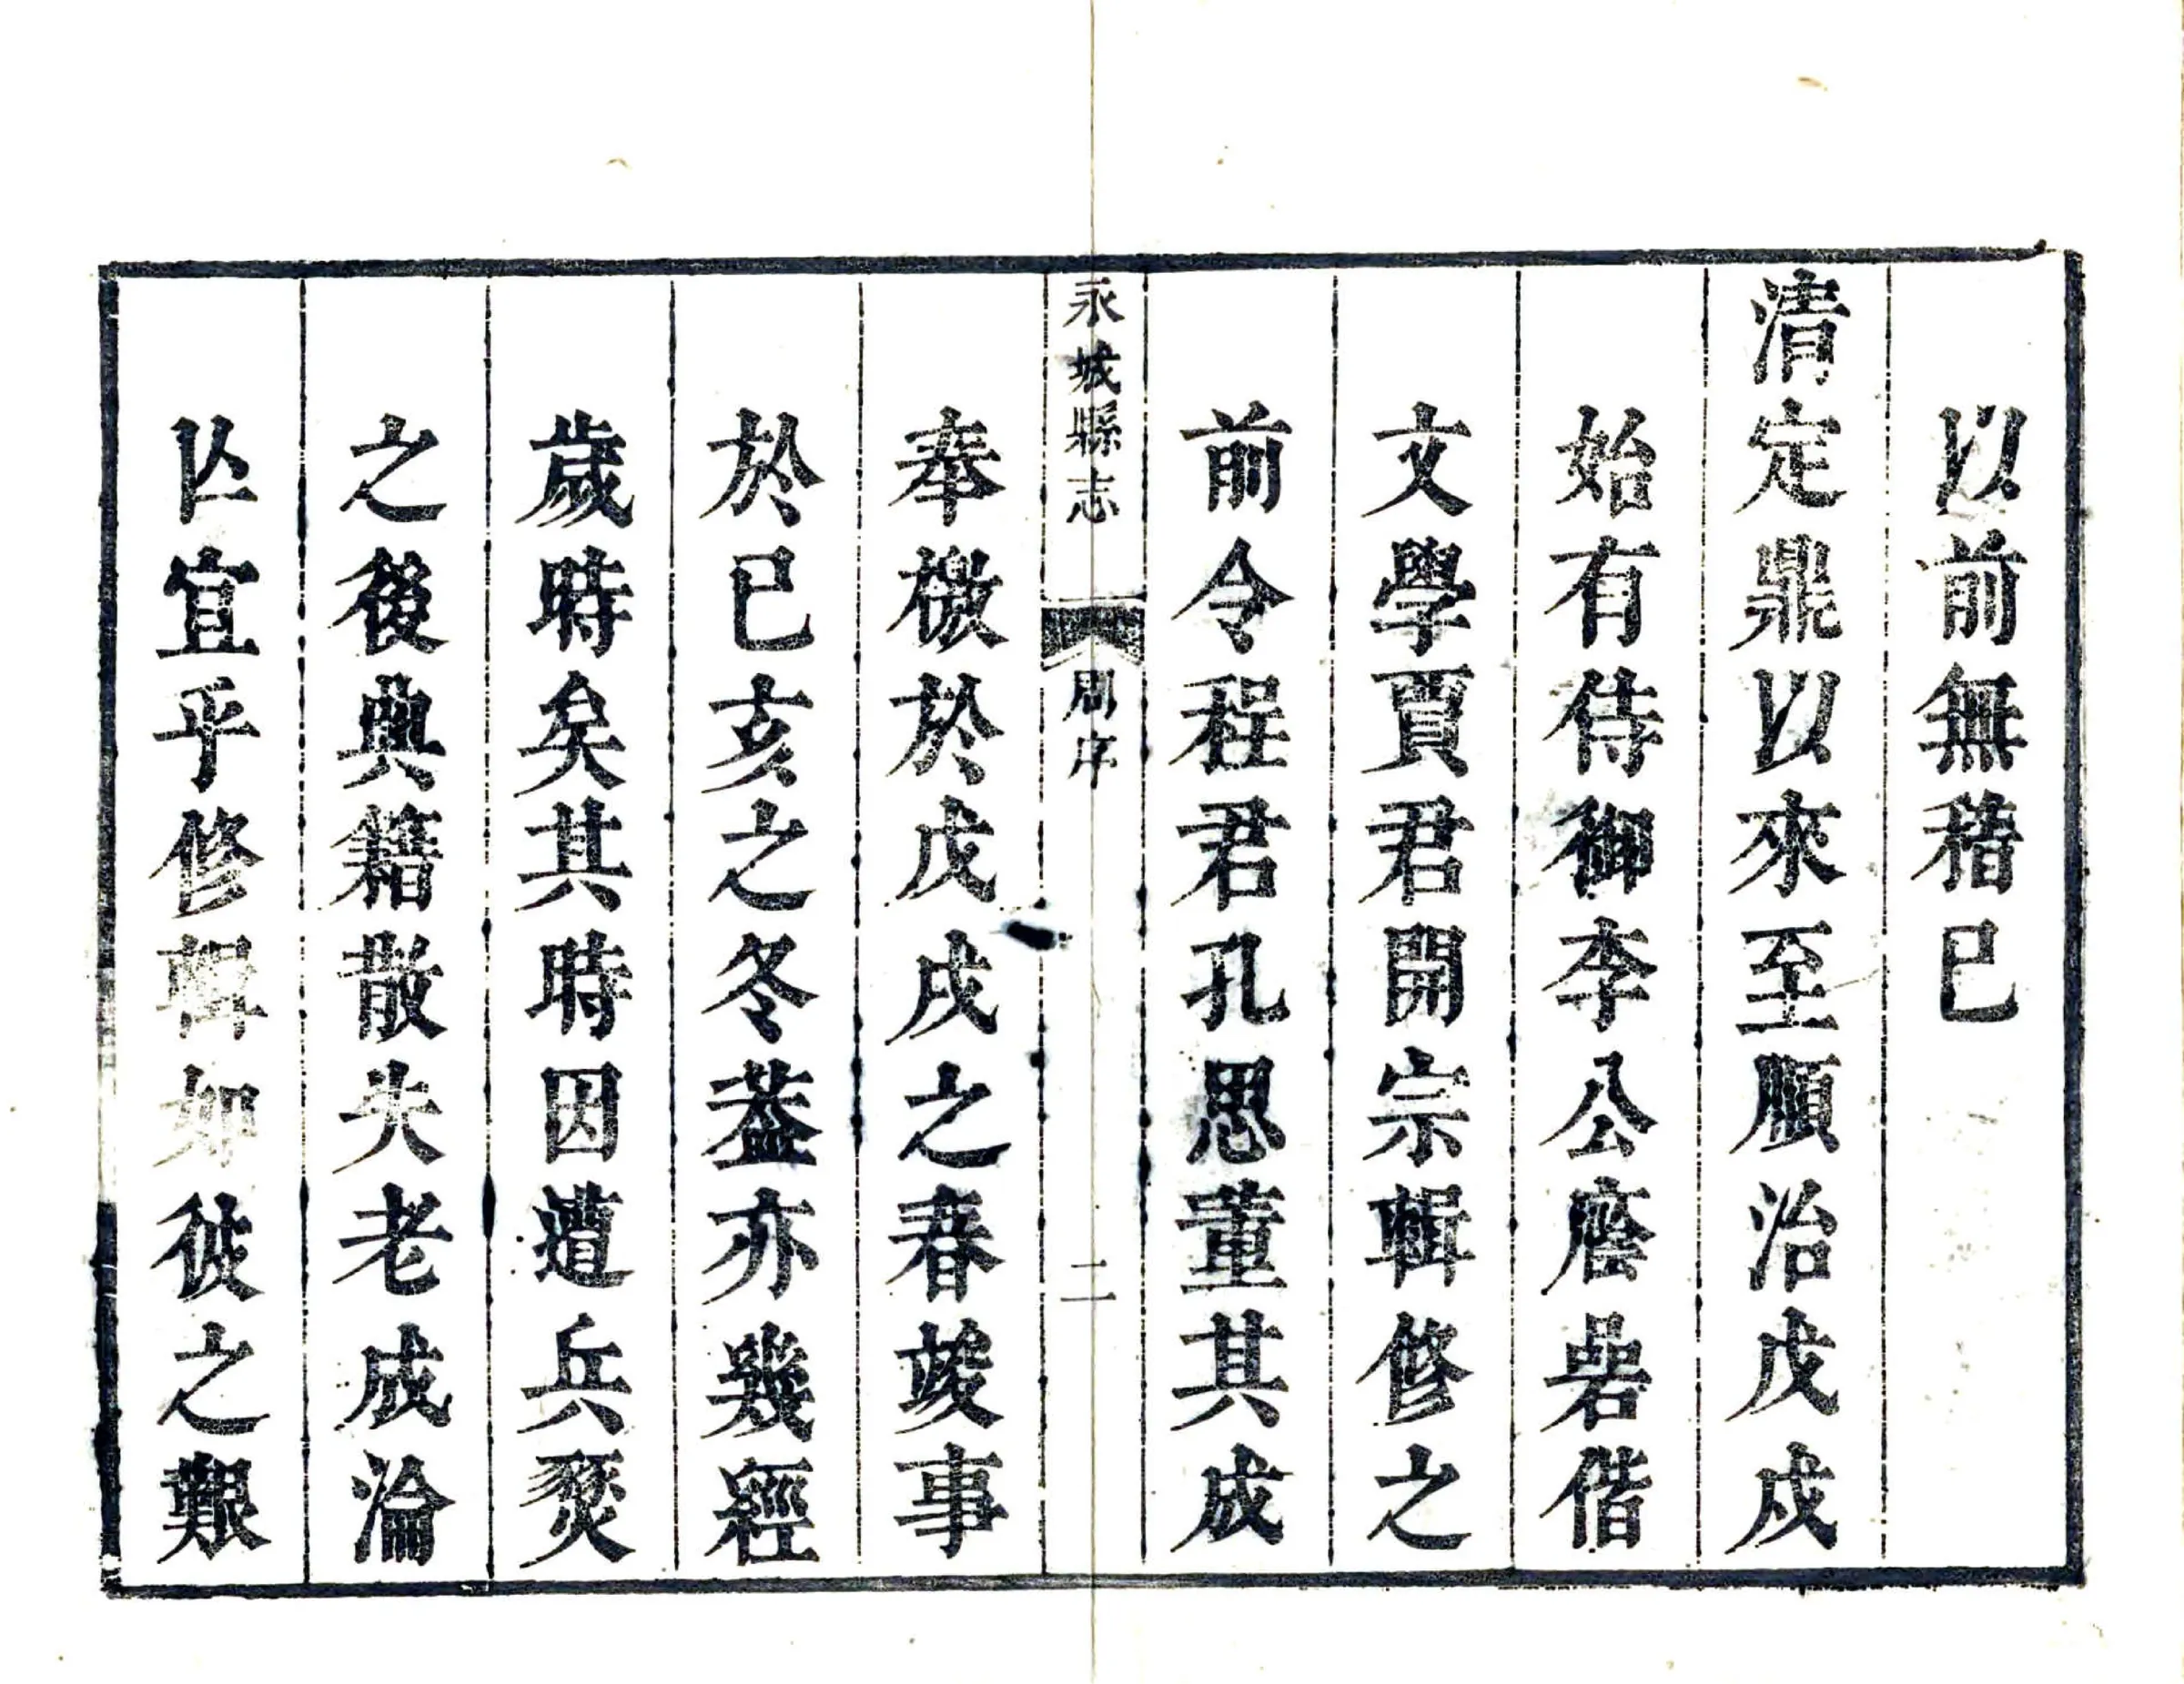 以前無稽已
清定鼎以來至順治戊戌
始有侍御李公䕃嵒偕
文學賈君開宗輯修之
前令程君孔思董其成
永城縣志
周序
二
奉檄於戊戌之春竣事
於已亥之冬葢亦幾經
歲時矣其時因遭兵燹
之後典籍散失老成淪
亾宜乎修輯如彼之艱